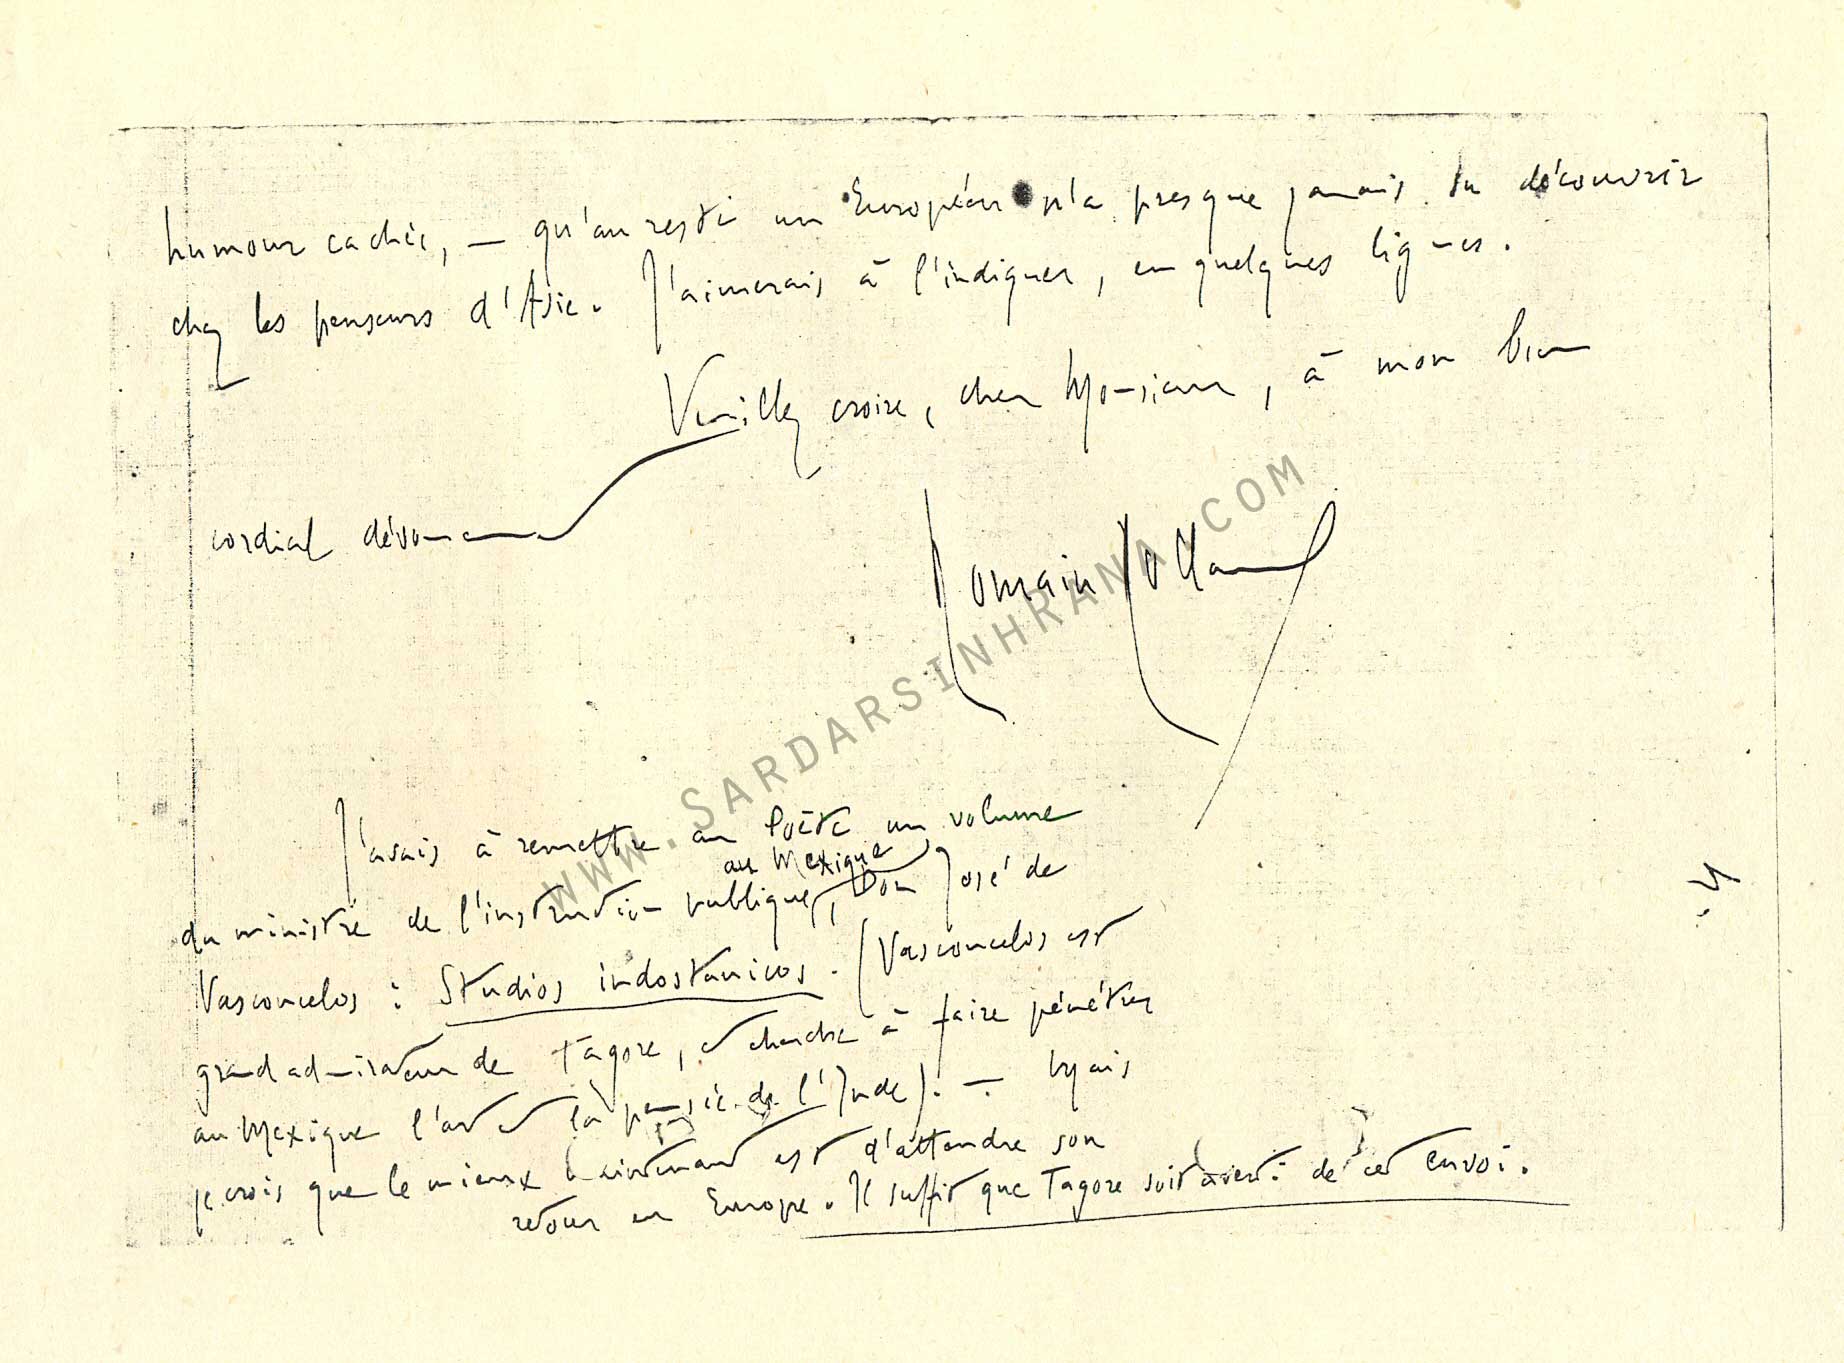 humour cachée, — qu'au reste un Européen n'a presque jamais su découvrir
chez les penseurs d'Asie. J'aimerais à l'indiquer, en quelques lignes.
Veuillez croire, cher Monsieur, à mon bien
cordial dévouement
Romain Rolland
J'avais à remettre au Poète un volume
du ministre de l'instruction publique au Mexique, Don José de
Vasconcelos : Studios indostanicos. (Vasconcelos est
grand admirateur de Tagore, et cherche à faire pénétrer
au Mexique l'art et la pensée de l'Inde). — Mais
je crois que le mieux maintenant est d'attendre son
retour en Europe. Il suffit que Tagore soit averti de cet envoi.
WWW.SARDARSINHRANA.COM